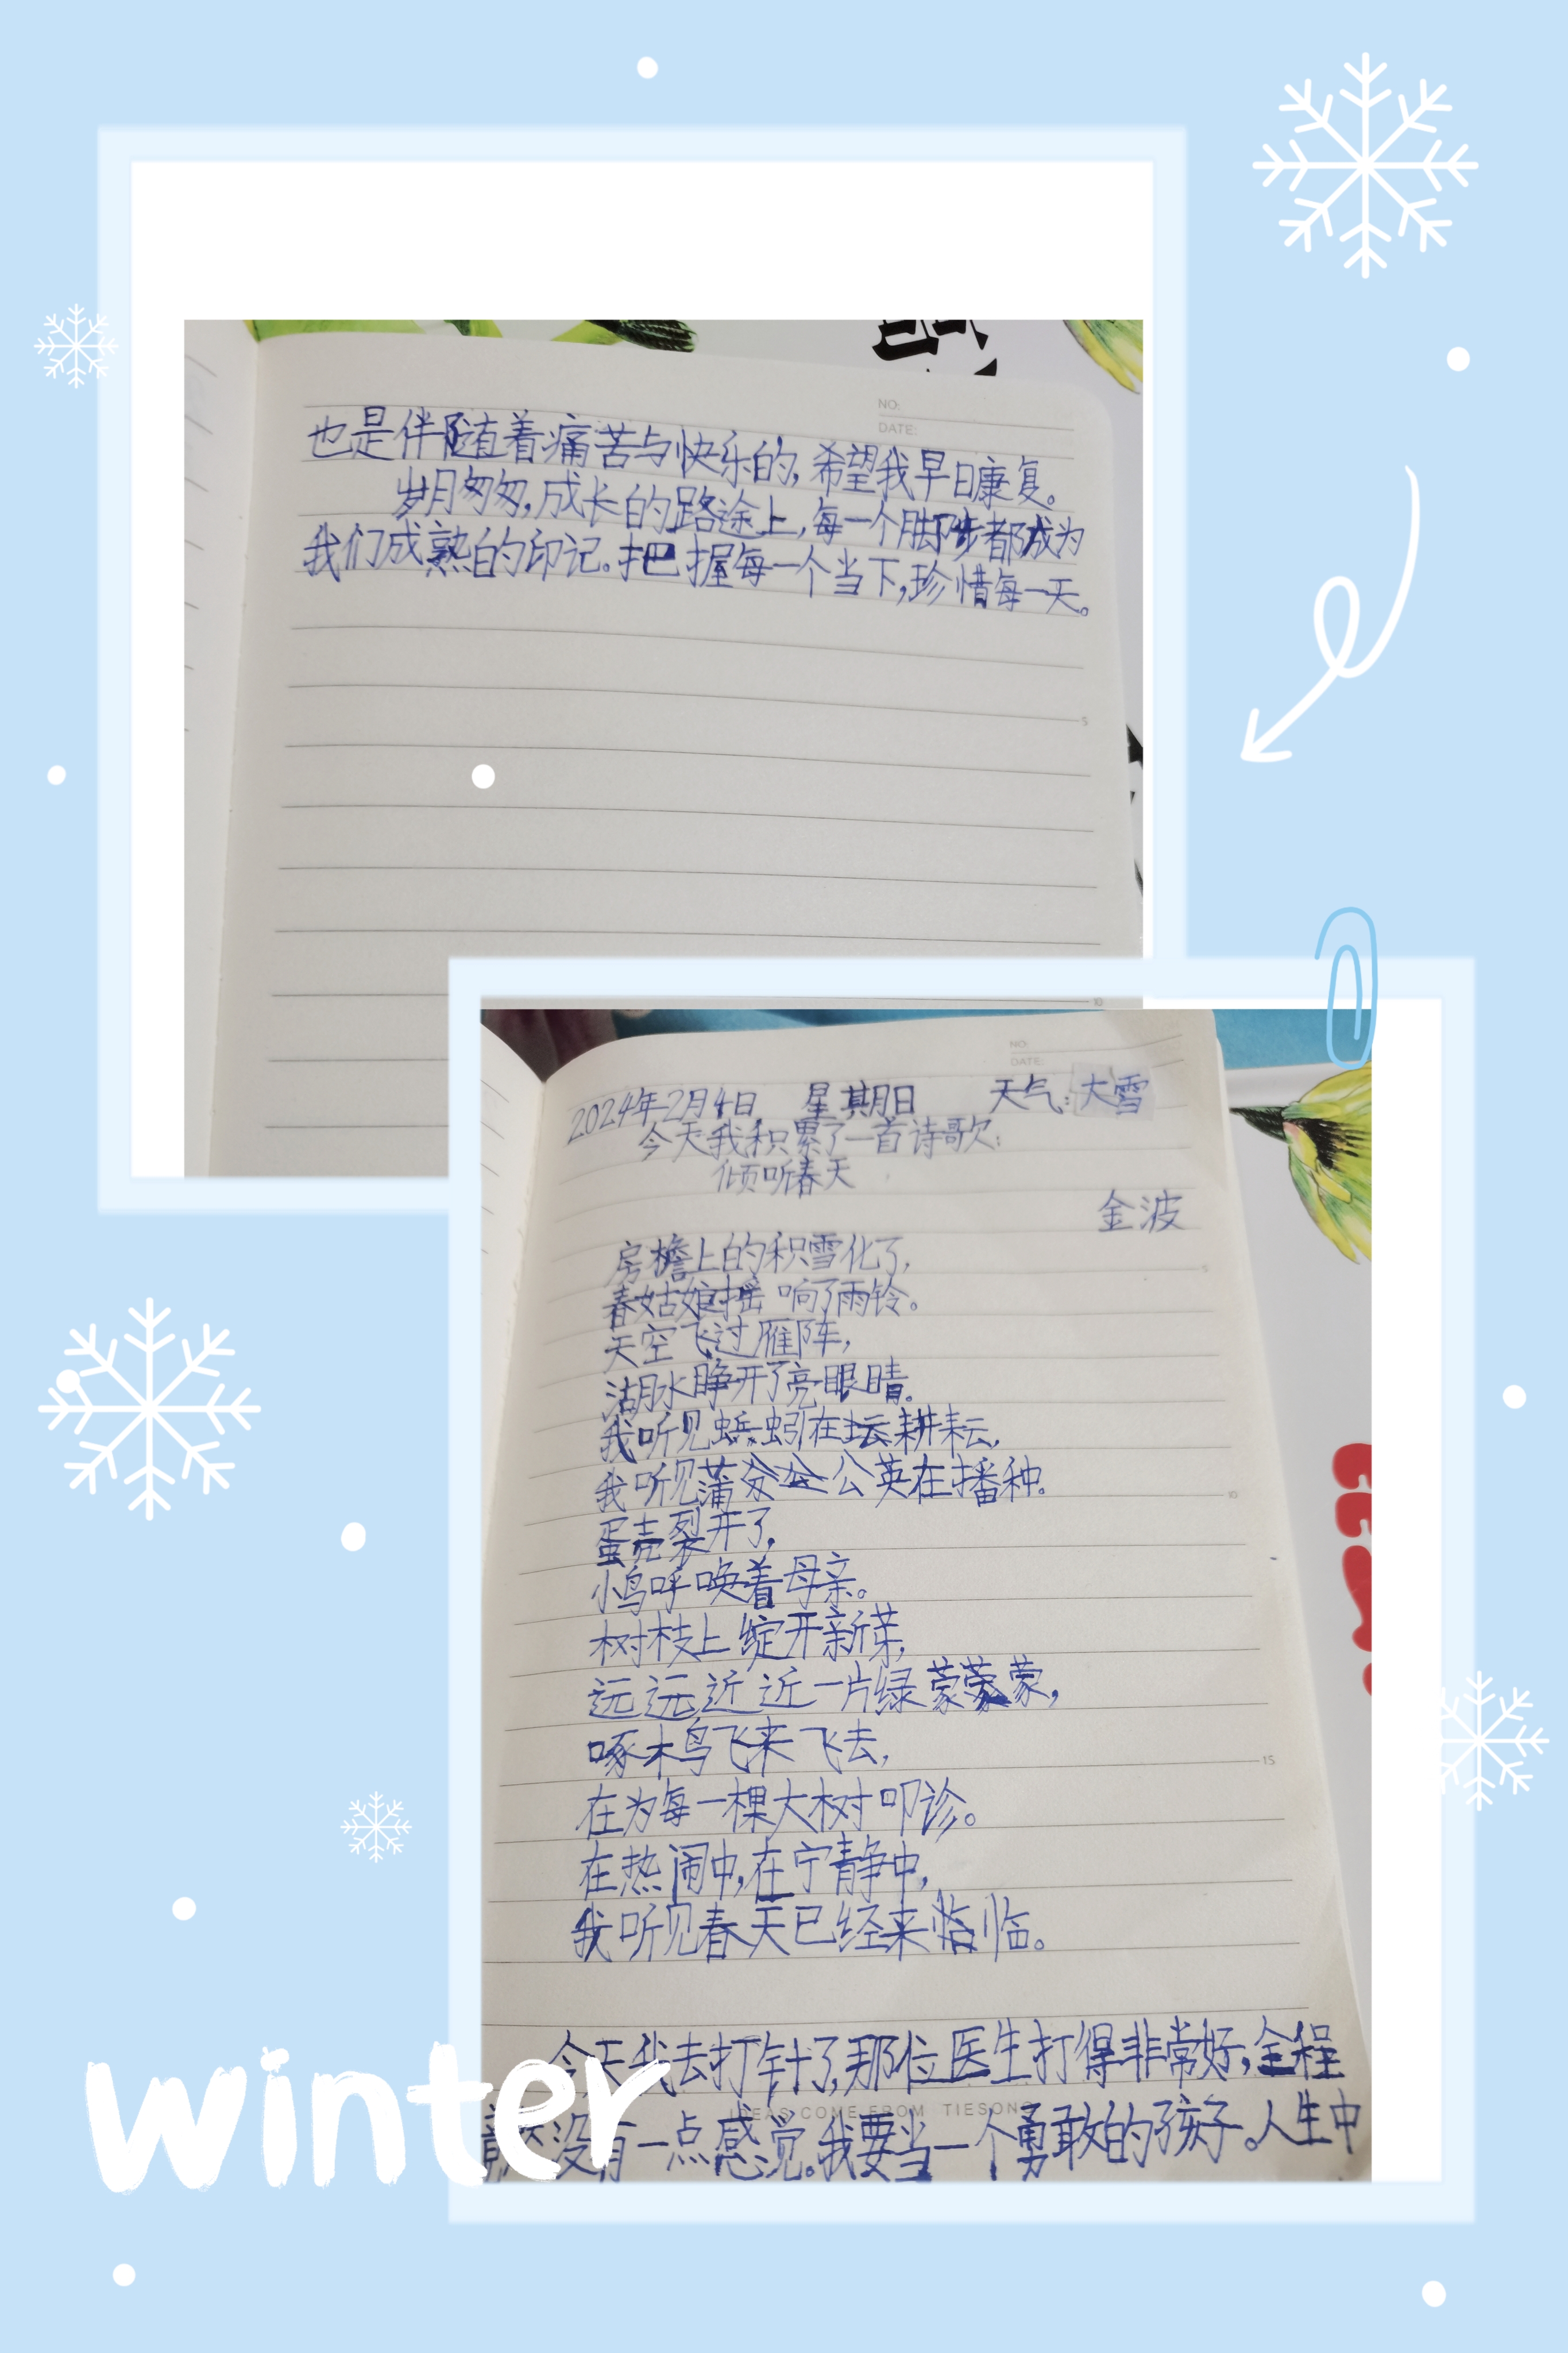 NO:
DATE:
也是伴随着痛苦与快乐的,希望我早日康复。
岁月匆匆,成长的路途上,每一个脚步都成为
我们成熟的印记。把握每一个当下,珍惜每一天。
5
10
NO:
DATE:
2024年2月4日 星期日 天气:大雪
今天我积累了一首诗歌:
倾听春天
金波
房檐上的积雪化了,
春姑娘摇响了雨铃。
天空飞过雁阵,
湖水睁开了亮眼睛。
我听见蚯蚓在耕耘,
我听见蒲公英在播种。
蛋壳裂开了,
小鸟呼唤着母亲。
树枝上绽开新芽,
远远近近一片绿蒙蒙,
啄木鸟飞来飞去,
在为每一棵大树叩诊。
在热闹中,在宁静中,
我听见春天已经来临。
5
10
15
今天我去打针了,那位医生打得非常好,全程
竟然没有一点感觉。我要当一个勇敢的孩子。人生中
IDEAS COME FROM TIESONG
winter